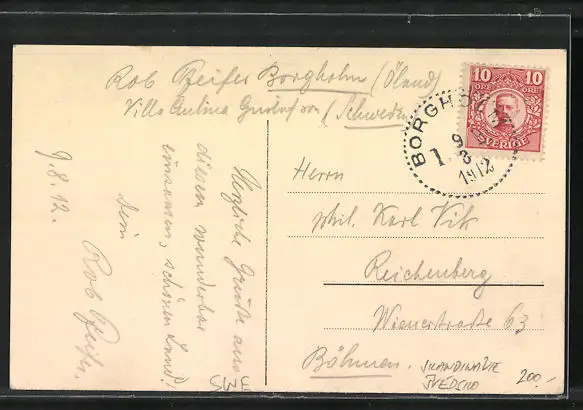 Rob Borgholm (Öland)
Villa (Schweden)
10 10
ÖRE ÖRE
SVERIGE
BORGHOLM
1.
9
8
1912
9.8.12.
Herzliche Grüße aus
diesem wunderbar
einsamen, schönen Land!
Dein
Rob
Herrn
phil. Karl
Reichenberg
Wienerstraße 63
Böhmen.
SWE
SKANDINÁVIE
ŠVÉDSKO
200.-